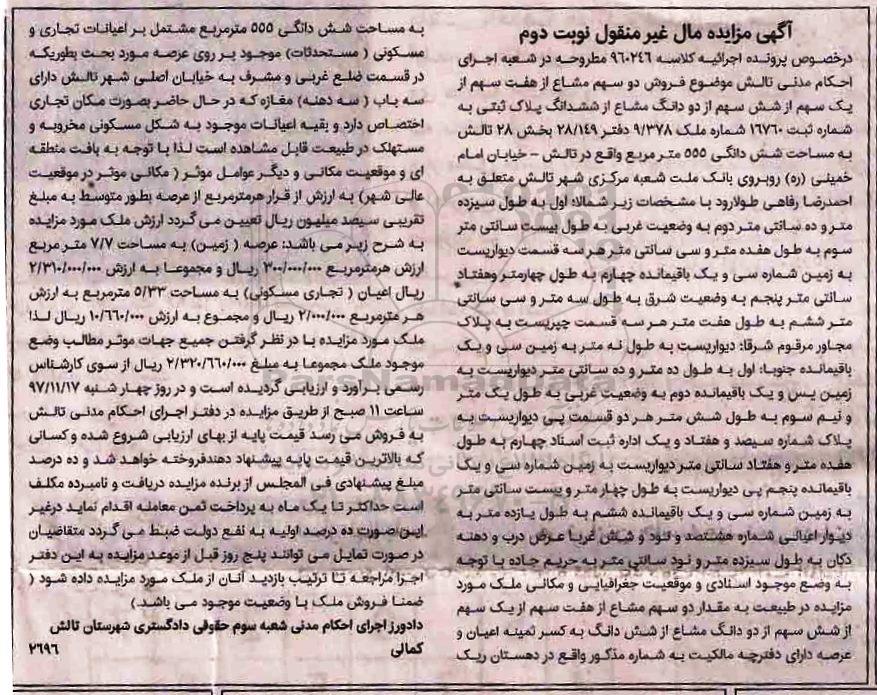 آگهی مزایده مال غیر منقول نوبت دوم
درخصوص پرونده اجرائیه کلاسه ۹۶۰۲۴۶ مطروحه در شعبه اجرای
احکام مدنی تالش موضوع فروش دو سهم مشاع از هفت سهم از
یک سهم از شش سهم از دو دانگ مشاع از ششدانگ پلاک ثبتی به
شماره ثبت ۱۶۷۶۰ شماره ملک ۹/۳۷۸ دفتر ۲۸/۱۴۹ بخش ۲۸ تالش
به مساحت شش دانگی ۵۵۵ متر مربع واقع در تالش - خیابان امام
خمینی (ره) روبروی بانک ملت شعبه مرکزی شهر تالش متعلق به
احمدرضا رفاهی طولارود با مشخصات زیر شمالا: اول به طول سیزده
متر و ده سانتی متر دوم به وضعیت غربی به طول بیست سانتی متر
سوم به طول هفده متر و سی سانتی متر هر سه قسمت دیواریست
به زمین شماره سی و یک باقیمانده چهارم به طول چهارمتر وهفتاد
سانتی متر پنجم به وضعیت شرق به طول سه متر و سی سانتی
متر ششم به طول هفت متر هر سه قسمت چپریست به پلاک
مجاور مرقوم شرقا: دیواریست به طول نه متر به زمین سی و یک
باقیمانده جنوبا: اول به طول ده متر و ده سانتی متر دیواریست به
زمین یس و یک باقیمانده دوم به وضعیت غربی به طول یک متر
و نیم سوم به طول شش متر هر دو قسمت پی دیواریست به
پلاک شماره سیصد و هفتاد و یک اداره ثبت اسناد چهارم به طول
هفده متر و هفتاد سانتی متر دیواریست به زمین شماره سی و یک
باقیمانده پنجم پی دیواریست به طول چهار متر و بیست سانتی متر
به زمین شماره سی و یک باقیمانده ششم به طول یازده متر به
دیوار اعیانی شماره هشتصد و نود و شش غربا عرض درب و دهنه
دکان به طول سیزده متر و نود سانتی متر به حریم جاده با توجه
به وضع موجود اسنادی و موقعیت جغرافیایی و مکانی ملک مورد
مزایده در طبیعت به مقدار دو سهم مشاع از هفت سهم از یک سهم
از شش سهم از دو دانگ مشاع از شش دانگ به کسر ثمینه اعیان و
عرصه دارای دفترچه مالکیت به شماره مذکور واقع در دهستان ریک
به مساحت شش دانگی ۵۵۵ مترمربع مشتمل بر اعیانات تجاری و
مسکونی ( مستحدثات) موجود بر روی عرصه مورد بحث بطوریکه
در قسمت ضلع غربی و مشرف به خیابان اصلی شهر تالش دارای
سه باب ( سه دهنه) مغازه که در حال حاضر بصورت مکان تجاری
اختصاص دارد و بقیه اعیانات موجود به شکل مسکونی مخروبه و
مستهلک در طبیعت قابل مشاهده است لذا با توجه به بافت منطقه
ای و موقعیت مکانی و دیگر عوامل موثر ( مکانی موثر در موقعیت
عالی شهر) به ارزش از قرار هرمترمربع از عرصه بطور متوسط به مبلغ
تقریبی سیصد میلیون ریال تعیین می گردد ارزش ملک مورد مزایده
به شرح زیر می باشد: عرصه ( زمین) به مساحت ۷/۷ متر مربع
ارزش هرمترمربع ۳۰۰/۰۰۰/۰۰۰ ریال و مجموعا به ارزش ۲/۳۱۰/۰۰۰/۰۰۰
ریال اعیان ( تجاری مسکونی) به مساحت ۵/۳۳ مترمربع به ارزش
هر مترمربع ۲/۰۰۰/۰۰۰ ریال و مجموع به ارزش ۱۰/۶۶۰/۰۰۰ ریال لذا
ملک مورد مزایده با در نظر گرفتن جمیع جهات موثر مطالب وضع
موجود ملک مجموعا به مبلغ ۲/۳۲۰/۶۶۰/۰۰۰ ریال از سوی کارشناس
رسمی برآورد و ارزیابی گردیده است و در روز چهار شنبه ۹۷/۱۱/۱۷
ساعت ۱۱ صبح از طریق مزایده در دفتر اجرای احکام مدنی تالش
به فروش می رسد قیمت پایه از بهای ارزیابی شروع شده و کسانی
که بالاترین قیمت پایه پیشنهاد دهندفروخته خواهد شد و ده درصد
مبلغ پیشنهادی فی المجلس از برنده مزایده دریافت و نامبرده مکلف
است حداکثر تا یک ماه به پرداخت ثمن معامله اقدام نماید درغیر
این صورت ده درصد اولیه به نفع دولت ضبط می گردد متقاضیان
در صورت تمایل می توانند پنج روز قبل از موعد مزایده به این دفتر
اجرا مراجعه تا ترتیب بازدید آنان از ملک مورد مزایده داده شود (
ضمنا فروش ملک با وضعیت موجود می باشد.)
دادورز اجرای احکام مدنی شعبه سوم حقوقی دادگستری شهرستان تالش
کمالی ۲۶۹۶